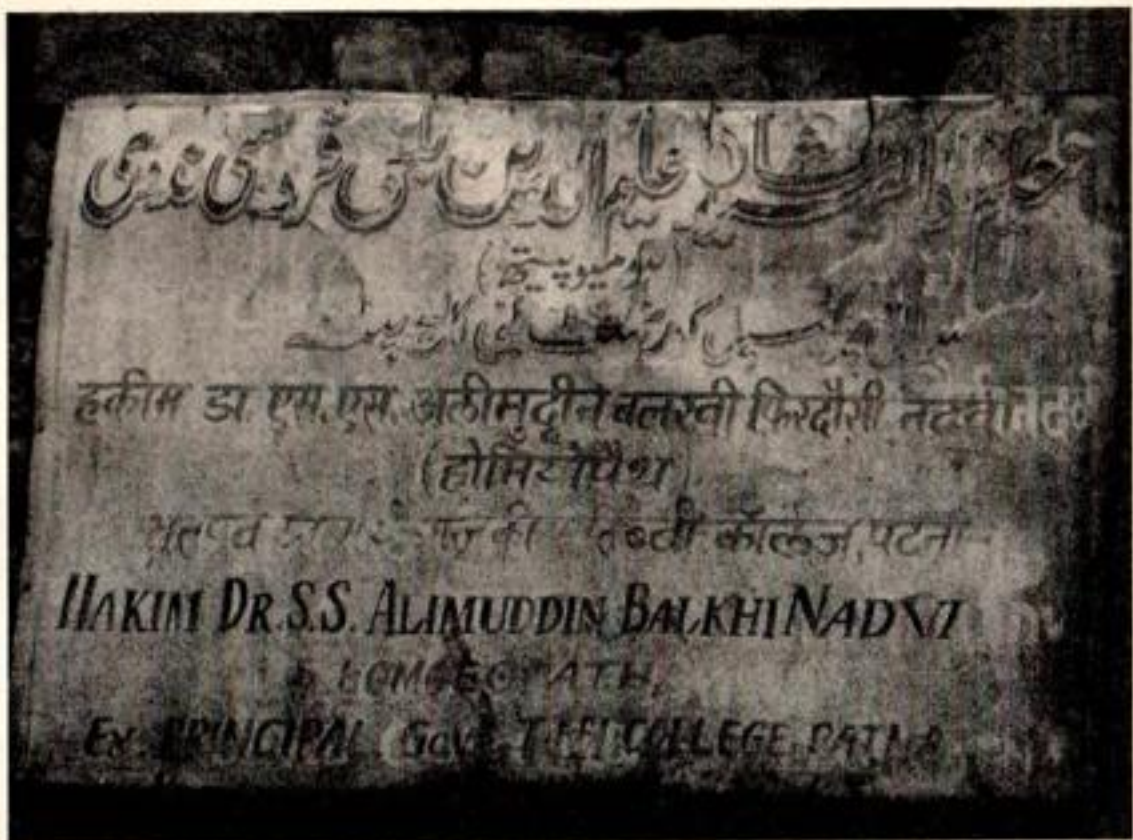 حکیم ڈاکٹر سید شاہ علیم الدین بلخی فردوسی ندوی
(ہومیوپیتھ)
سابق پرنسپل گورنمنٹ طبی کالج پٹنہ
हकीम डा एस.एस. अलीमुद्दीन बलखी फिरदौसी नदवी
(होमियोपैथ)
कॉलेज, पटना
HAKIM DR. S.S. ALIMUDDIN BALKHI NADVI
HOMOEOPATH,
EX. PRINCIPAL GOVT. TIBBI COLLEGE PATNA